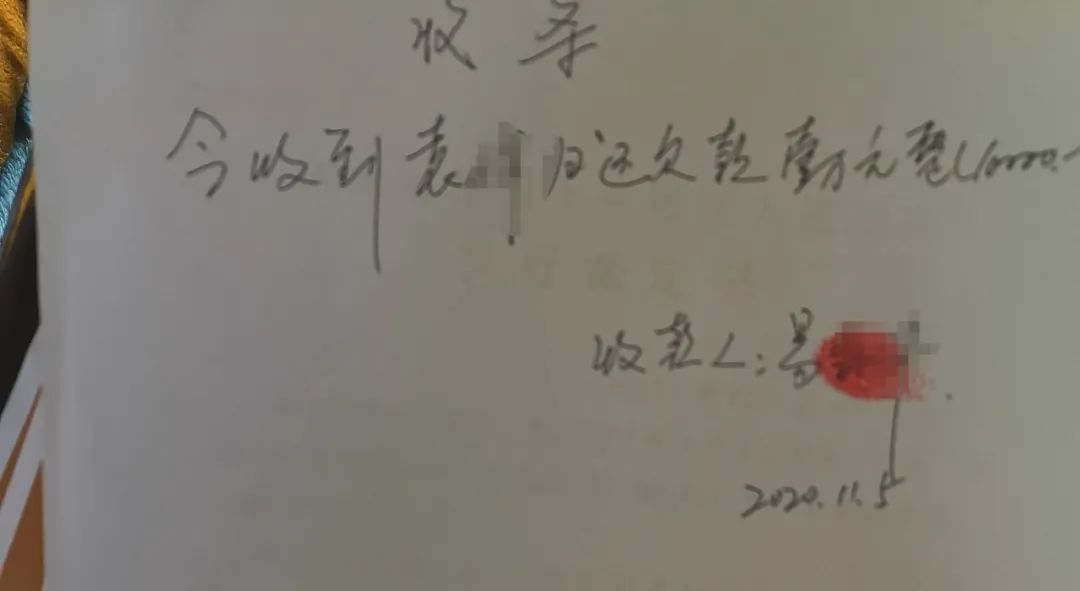 收条
今收到袁 归还欠款壹万元整(10000.
收款人:易
2020.11.5